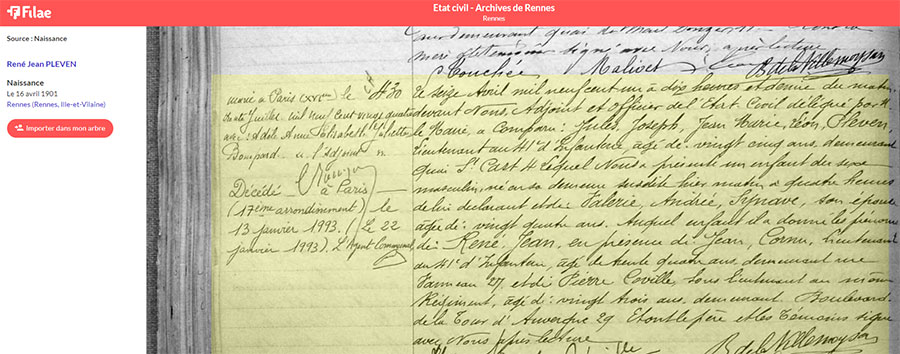 Filae
Etat civil - Archives de Rennes
Rennes
Source : Naissance
René Jean PLEVEN
Naissance
Le 16 avril 1901
Rennes (Rennes, Ille-et-Vilaine)
Importer dans mon arbre
demeurant quai de
signé avec Nous, après lecture
Couchée Malivet
marié à Paris le
juillet mil neuf cent vingt quatre
avec Adèle Anne Elisabeth
Bompard
Décédé à Paris
(17ème arrondissement) le
13 janvier 1993. (le 22
janvier 1993). L'Agent Communal
Le seize Avril mil neuf cent un à dix heures et demie du matin
devant Nous, Adjoint et Officier de l'Etat Civil délégué par M.
le Maire, a Comparu : Jules, Joseph, Jean Marie, Léon, Pleven,
Lieutenant au 41e d'Infanterie, âgé de vingt cinq ans, demeurant
quai St Cast 4 Lequel Nous a présenté un enfant du sexe
masculin, né en sa demeure susdite hier matin, à quatre heures
de lui déclarant et de Valérie, Andrée, Synave, son épouse
âgée de vingt quatre ans. Auquel enfant il a donné les prénoms
de René, Jean, en présence de Jean, Cornu, Lieutenant
au 41e d'Infanterie, âgé de trente quatre ans, demeurant rue
27, et de Pierre Coville, sous lieutenant au même
Régiment, âgé de vingt trois ans, demeurant Boulevard
de la Tour d'Auvergne 29 Et ont le père et les témoins signé
avec Nous après lecture